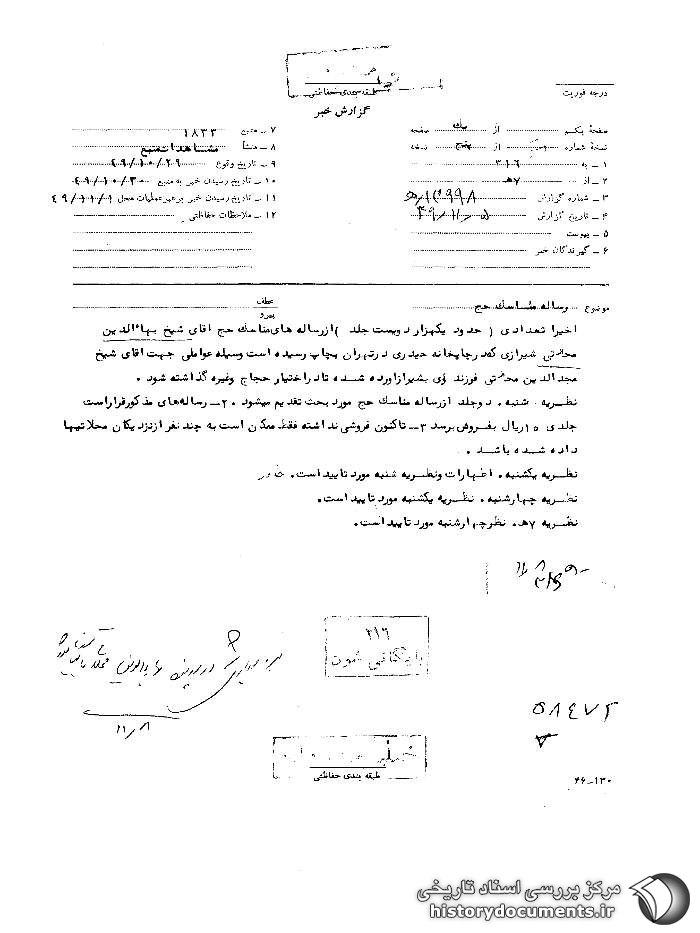 طبقه بندی حفاظتی
درجه فوریت
گزارش خبر
صفحهٔ یکم از یک صفحه
نسخهٔ شماره از پنج نسخه
۱ ـ به ۳۱۶
۲ ـ از ۷هـ
۳ ـ شماره گزارش
۴ ـ تاریخ گزارش
۵ ـ پیوست
۶ ـ گیرندگان خبر
۷ ـ منبع ۱۸۳۳
۸ ـ منشأ مشاهدات منبع
۹ ـ تاریخ وقوع ۴۹/۱۰/۲۹
۱۰ ـ تاریخ رسیدن خبر به منبع ۴۹/۱۰/۳۰
۱۱ ـ تاریخ رسیدن خبر برهبر عملیات محل ۴۹/۱۱/۱
۱۲ ـ ملاحظات حفاظتی
موضوع رساله مناسک حج
عطف
پیرو
اخیرا تعدادی ( حدود یکهزار دویست جلد ) از رساله های مناسک حج آقای شیخ بهاءالدین
محلاتی شیرازی که در چاپخانه حیدری در تهران بچاپ رسیده است وسیله عواملی جهت آقای شیخ
مجدالدین محلاتی فرزند وی بشیراز آورده شده تا در اختیار حجاج وغیره گذاشته شود .
نظریه شنبه . دوجلد از رساله مناسک حج مورد بحث تقدیم میشود . ۲ــ رساله‌های مذکور قرار است
جلدی ۱۵ ریال بفروش برسد ۳ــ تاکنون فروشی نداشته فقط ممکن است به چند نفر از نزدیکان محلاتیها
داده شده باشد .
نظریه یکشنبه . اظهارات ونظریه شنبه مورد تایید است . خاور
نظریه چهارشنبه . نظریه یکشنبه مورد تایید است .
نظریه ۷هـ . نظر چهارشنبه مورد تایید است .
۳۱۶
بایگانی شود
۱۱/۸
۵۸۴۷۲
طبقه بندی حفاظتی
۴۶ــ۱۳۰
مرکز بررسی اسناد تاریخی
historydocuments.ir